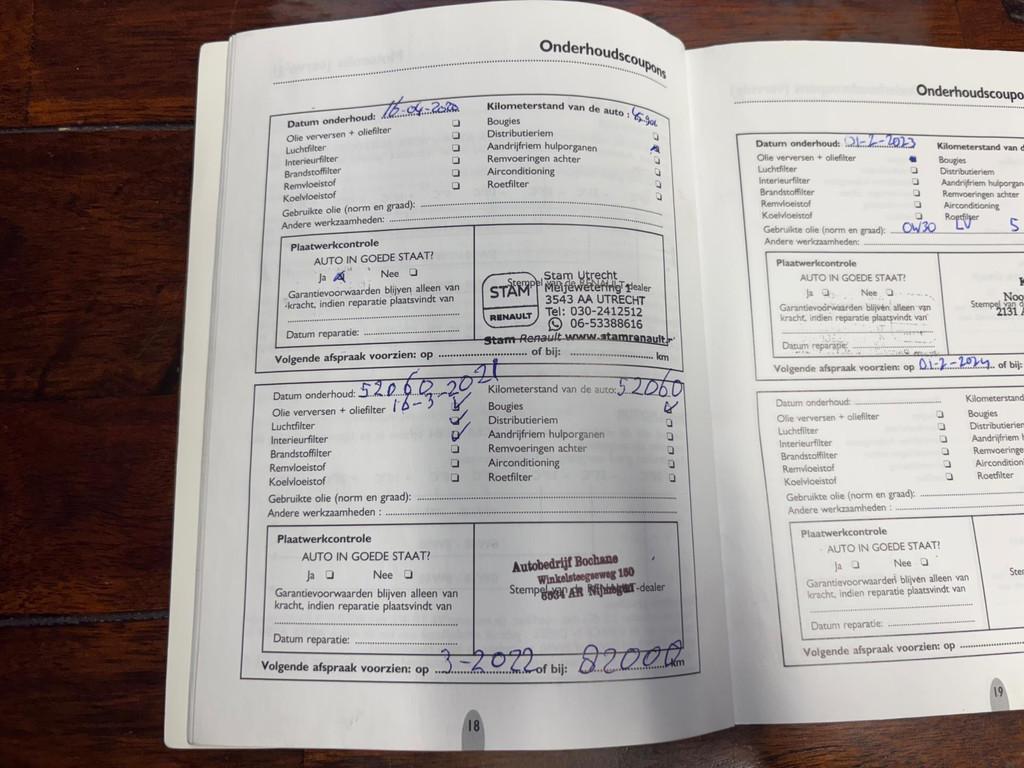 Onderhoudscoupons
Datum onderhoud: 16-04-2020 Kilometerstand van de auto :
Olie verversen + oliefilter Bougies
Luchtfilter Distributieriem
Interieurfilter Aandrijfriem hulporganen
Brandstoffilter Remvoeringen achter
Remvloeistof Airconditioning
Koelvloeistof Roetfilter
Gebruikte olie (norm en graad):
Andere werkzaamheden:
Plaatwerkcontrole
AUTO IN GOEDE STAAT?
Ja Nee
Garantievoorwaarden blijven alleen van
kracht, indien reparatie plaatsvindt van
Datum reparatie:
STAM
RENAULT
Stam Utrecht
Stempel van de RENAULT-dealer
Meijewetering 1
3543 AA UTRECHT
Tel: 030-2412512
06-53388616
Stam Renault www.stamrenault.
Volgende afspraak voorzien: op of bij: km
Datum onderhoud: 52060 2021 Kilometerstand van de auto: 52060
16-3
Olie verversen + oliefilter Bougies
Luchtfilter Distributieriem
Interieurfilter Aandrijfriem hulporganen
Brandstoffilter Remvoeringen achter
Remvloeistof Airconditioning
Koelvloeistof Roetfilter
Gebruikte olie (norm en graad):
Andere werkzaamheden :
Plaatwerkcontrole
AUTO IN GOEDE STAAT?
Ja Nee
Garantievoorwaarden blijven alleen van
kracht, indien reparatie plaatsvindt van
Datum reparatie:
Autobedrijf Bochane
Winkelsteegseweg 150
Stempel van de RENAULT-dealer
AR Nijmegen
Volgende afspraak voorzien: op 3-2022 of bij: 82000 km
18
Onderhoudscoupo
Datum onderhoud: 01-2-2023 Kilometerstand van d
Olie verversen + oliefilter Bougies
Luchtfilter Distributieriem
Interieurfilter Aandrijfriem hulporgan
Brandstoffilter Remvoeringen achter
Remvloeistof Airconditioning
Koelvloeistof Roetfilter
Gebruikte olie (norm en graad): 0W30 LV 5
Andere werkzaamheden:
Plaatwerkcontrole
AUTO IN GOEDE STAAT?
Ja Nee
Garantievoorwaarden blijven alleen van
kracht, indien reparatie plaatsvindt van
Datum reparatie:
K
Noo
Stempel van d
2131 A
Volgende afspraak voorzien: op 01-2-2024 of bij:
Datum onderhoud: Kilometerstand
Olie verversen + oliefilter Bougies
Luchtfilter Distributieriem
Interieurfilter Aandrijfriem h
Brandstoffilter Remvoeringen
Remvloeistof Airconditioni
Koelvloeistof Roetfilter
Gebruikte olie (norm en graad):
Andere werkzaamheden:
Plaatwerkcontrole
AUTO IN GOEDE STAAT?
Ja Nee
Garantievoorwaarden blijven alleen van
kracht, indien reparatie plaatsvindt van
Datum reparatie:
Ste
Volgende afspraak voorzien: op
19